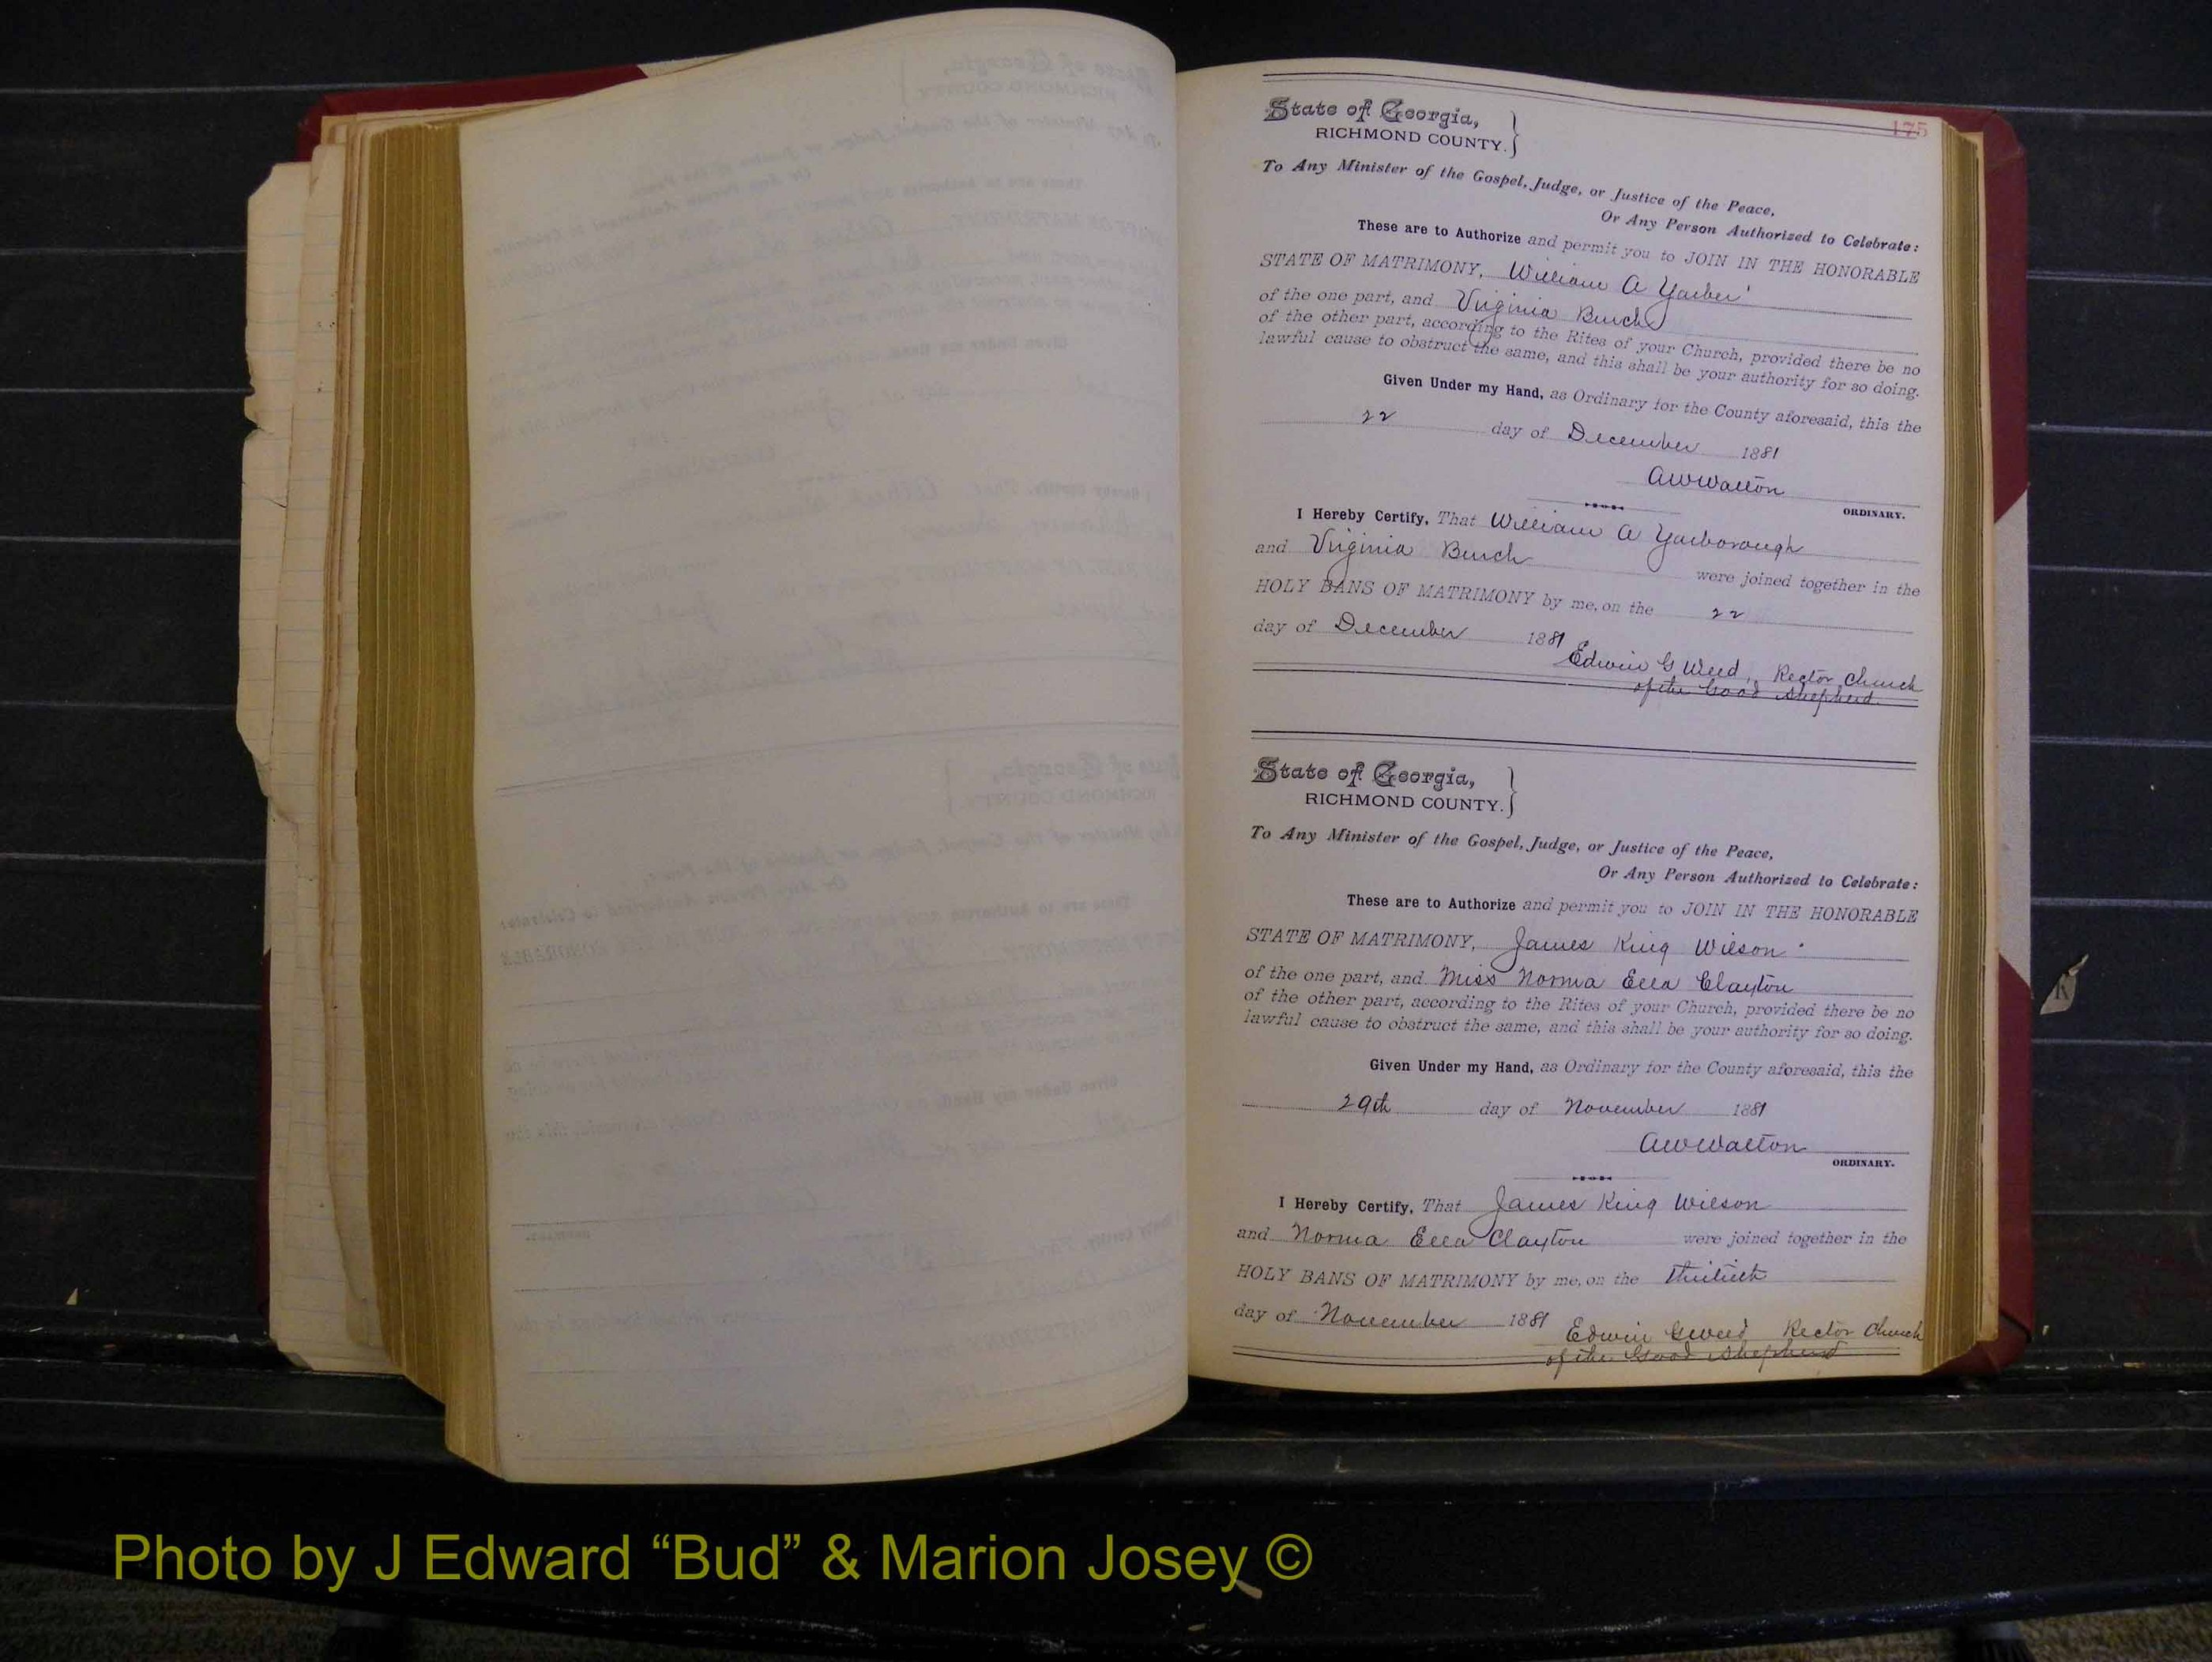 175
State of Georgia,
RICHMOND COUNTY.
To Any Minister of the Gospel, Judge, or Justice of the Peace,
Or Any Person Authorized to Celebrate:
These are to Authorize and permit you to JOIN IN THE HONORABLE
STATE OF MATRIMONY, William A Yarber
of the one part, and Virginia Burch
of the other part, according to the Rites of your Church, provided there be no
lawful cause to obstruct the same, and this shall be your authority for so doing.
Given Under my Hand, as Ordinary for the County aforesaid, this the
22 day of December 1881
AWWalton
ORDINARY.
I Hereby Certify, That William A Yarborough
and Virginia Burch were joined together in the
HOLY BANS OF MATRIMONY by me, on the 22
day of December 1881
Edwin G Weed, Rector Church
of the Good Shepherd.
State of Georgia,
RICHMOND COUNTY.
To Any Minister of the Gospel, Judge, or Justice of the Peace,
Or Any Person Authorized to Celebrate:
These are to Authorize and permit you to JOIN IN THE HONORABLE
STATE OF MATRIMONY, James King Wilson
of the one part, and Miss Norma Ella Clayton
of the other part, according to the Rites of your Church, provided there be no
lawful cause to obstruct the same, and this shall be your authority for so doing.
Given Under my Hand, as Ordinary for the County aforesaid, this the
29th day of November 1881
AWWalton
ORDINARY.
I Hereby Certify, That James King Wilson
and Norma Ella Clayton were joined together in the
HOLY BANS OF MATRIMONY by me, on the
day of November 1881
Edwin G Weed Rector Church
of the Good Shepherd
Photo by J Edward “Bud” & Marion Josey ©